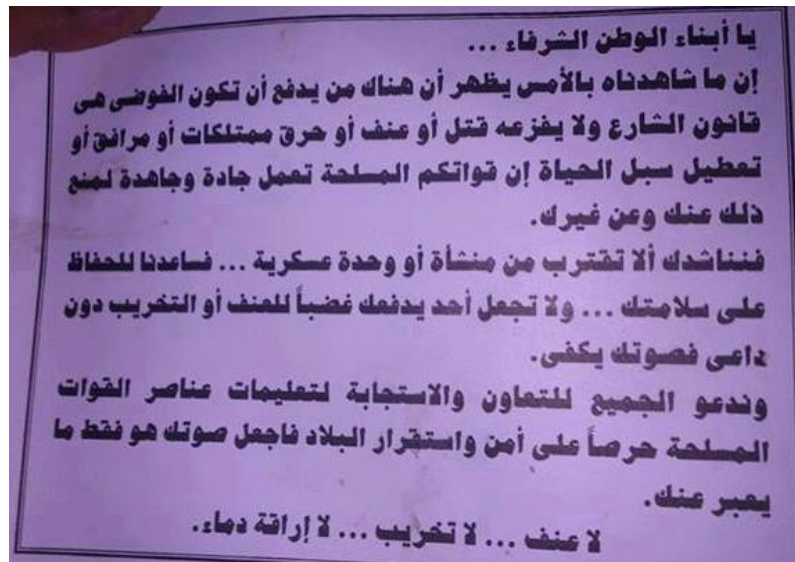 يا أبناء الوطن الشرفاء ...
إن ما شاهدناه بالأمس يظهر أن هناك من يدفع أن تكون الفوضى هى
قانون الشارع ولا يفزعه قتل أو عنف أو حرق ممتلكات أو مرافق أو
تعطيل سبل الحياة إن قواتكم المسلحة تعمل جادة وجاهدة لمنع
ذلك عنك وعن غيرك.
فنناشدك ألا تقترب من منشأة أو وحدة عسكرية ... فساعدنا للحفاظ
على سلامتك ... ولا تجعل أحد يدفعك غضباً للعنف أو التخريب دون
داعى فصوتك يكفى.
وندعو الجميع للتعاون والاستجابة لتعليمات عناصر القوات
المسلحة حرصاً على أمن واستقرار البلاد فاجعل صوتك هو فقط ما
يعبر عنك.
لا عنف ... لا تخريب ... لا إراقة دماء.